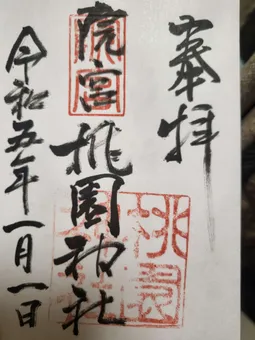 奉拝
院宮
桃園神社
令和五年一月一日
桃園神社